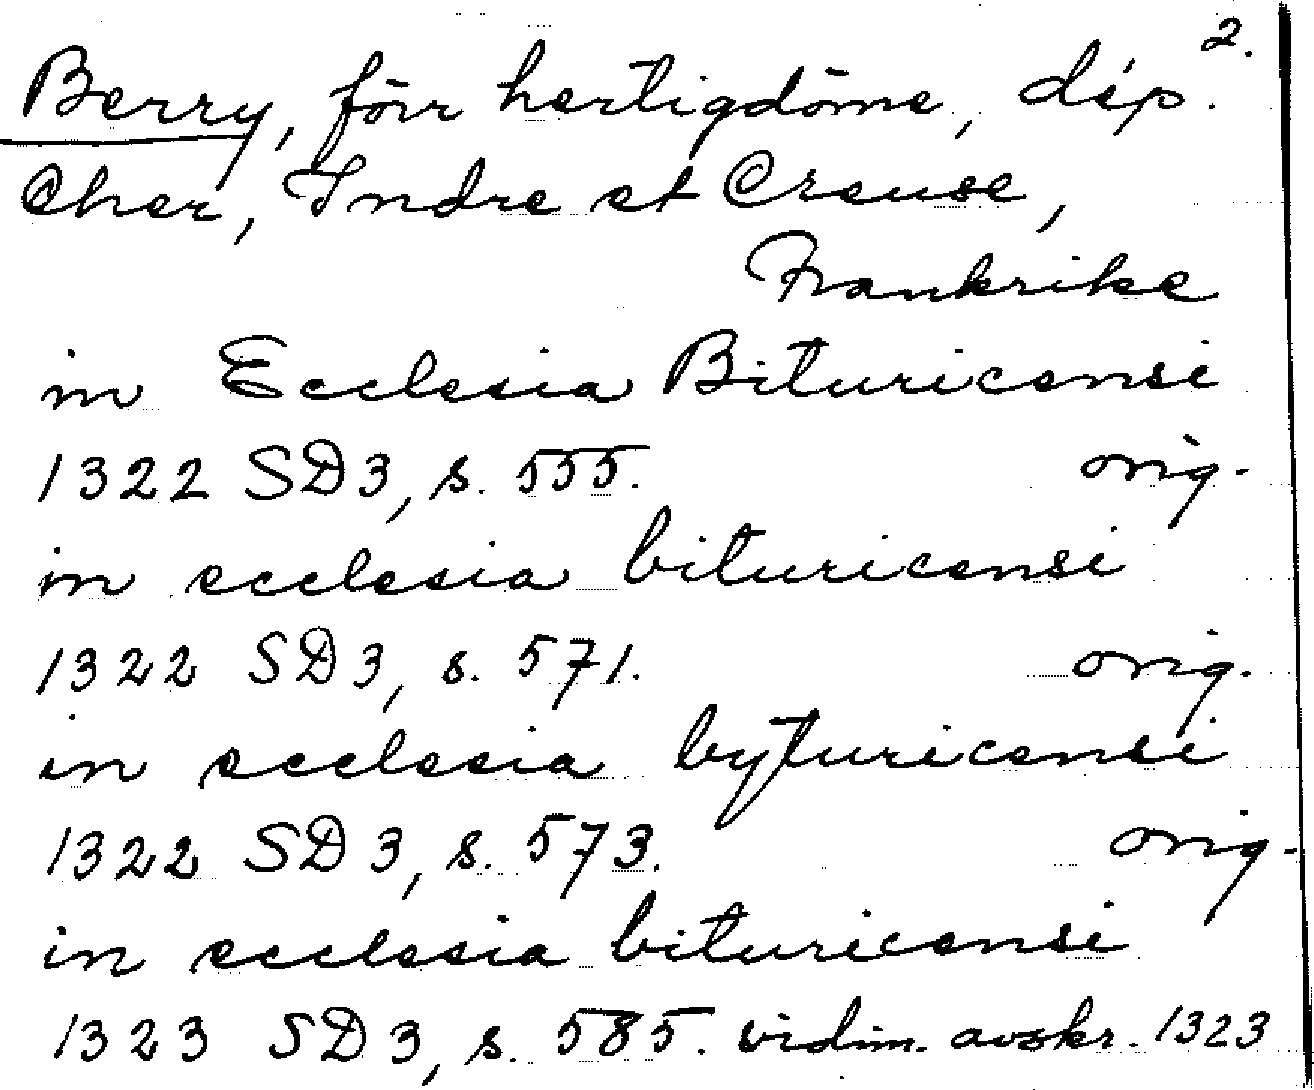 2.
Berry, förr hertigdöme, dép.
Cher, Indre et Creuse,
Frankrike
in Ecclesia Bituricensi
1322 SD3, s. 555. orig.
in ecclesia bituricensi
1322 SD3, s. 571. orig.
in ecclesia byturicensi
1322 SD3, s. 573. orig.
in ecclesia bituricensi
1323 SD3, s. 585. vidim. avskr. 1323